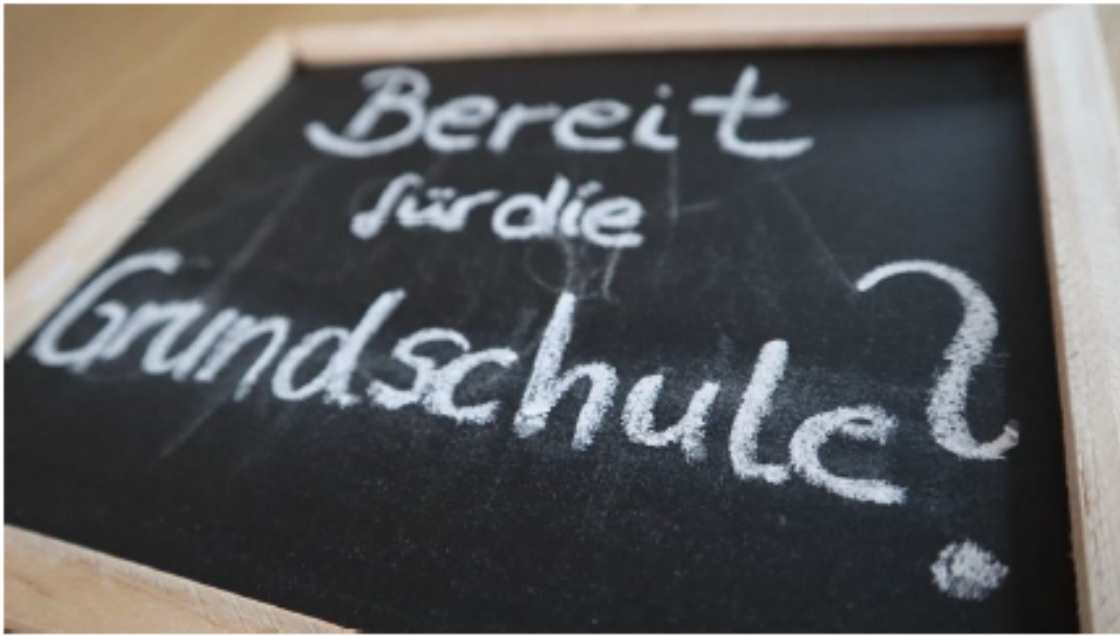 Bereit
für die
Grundschule?